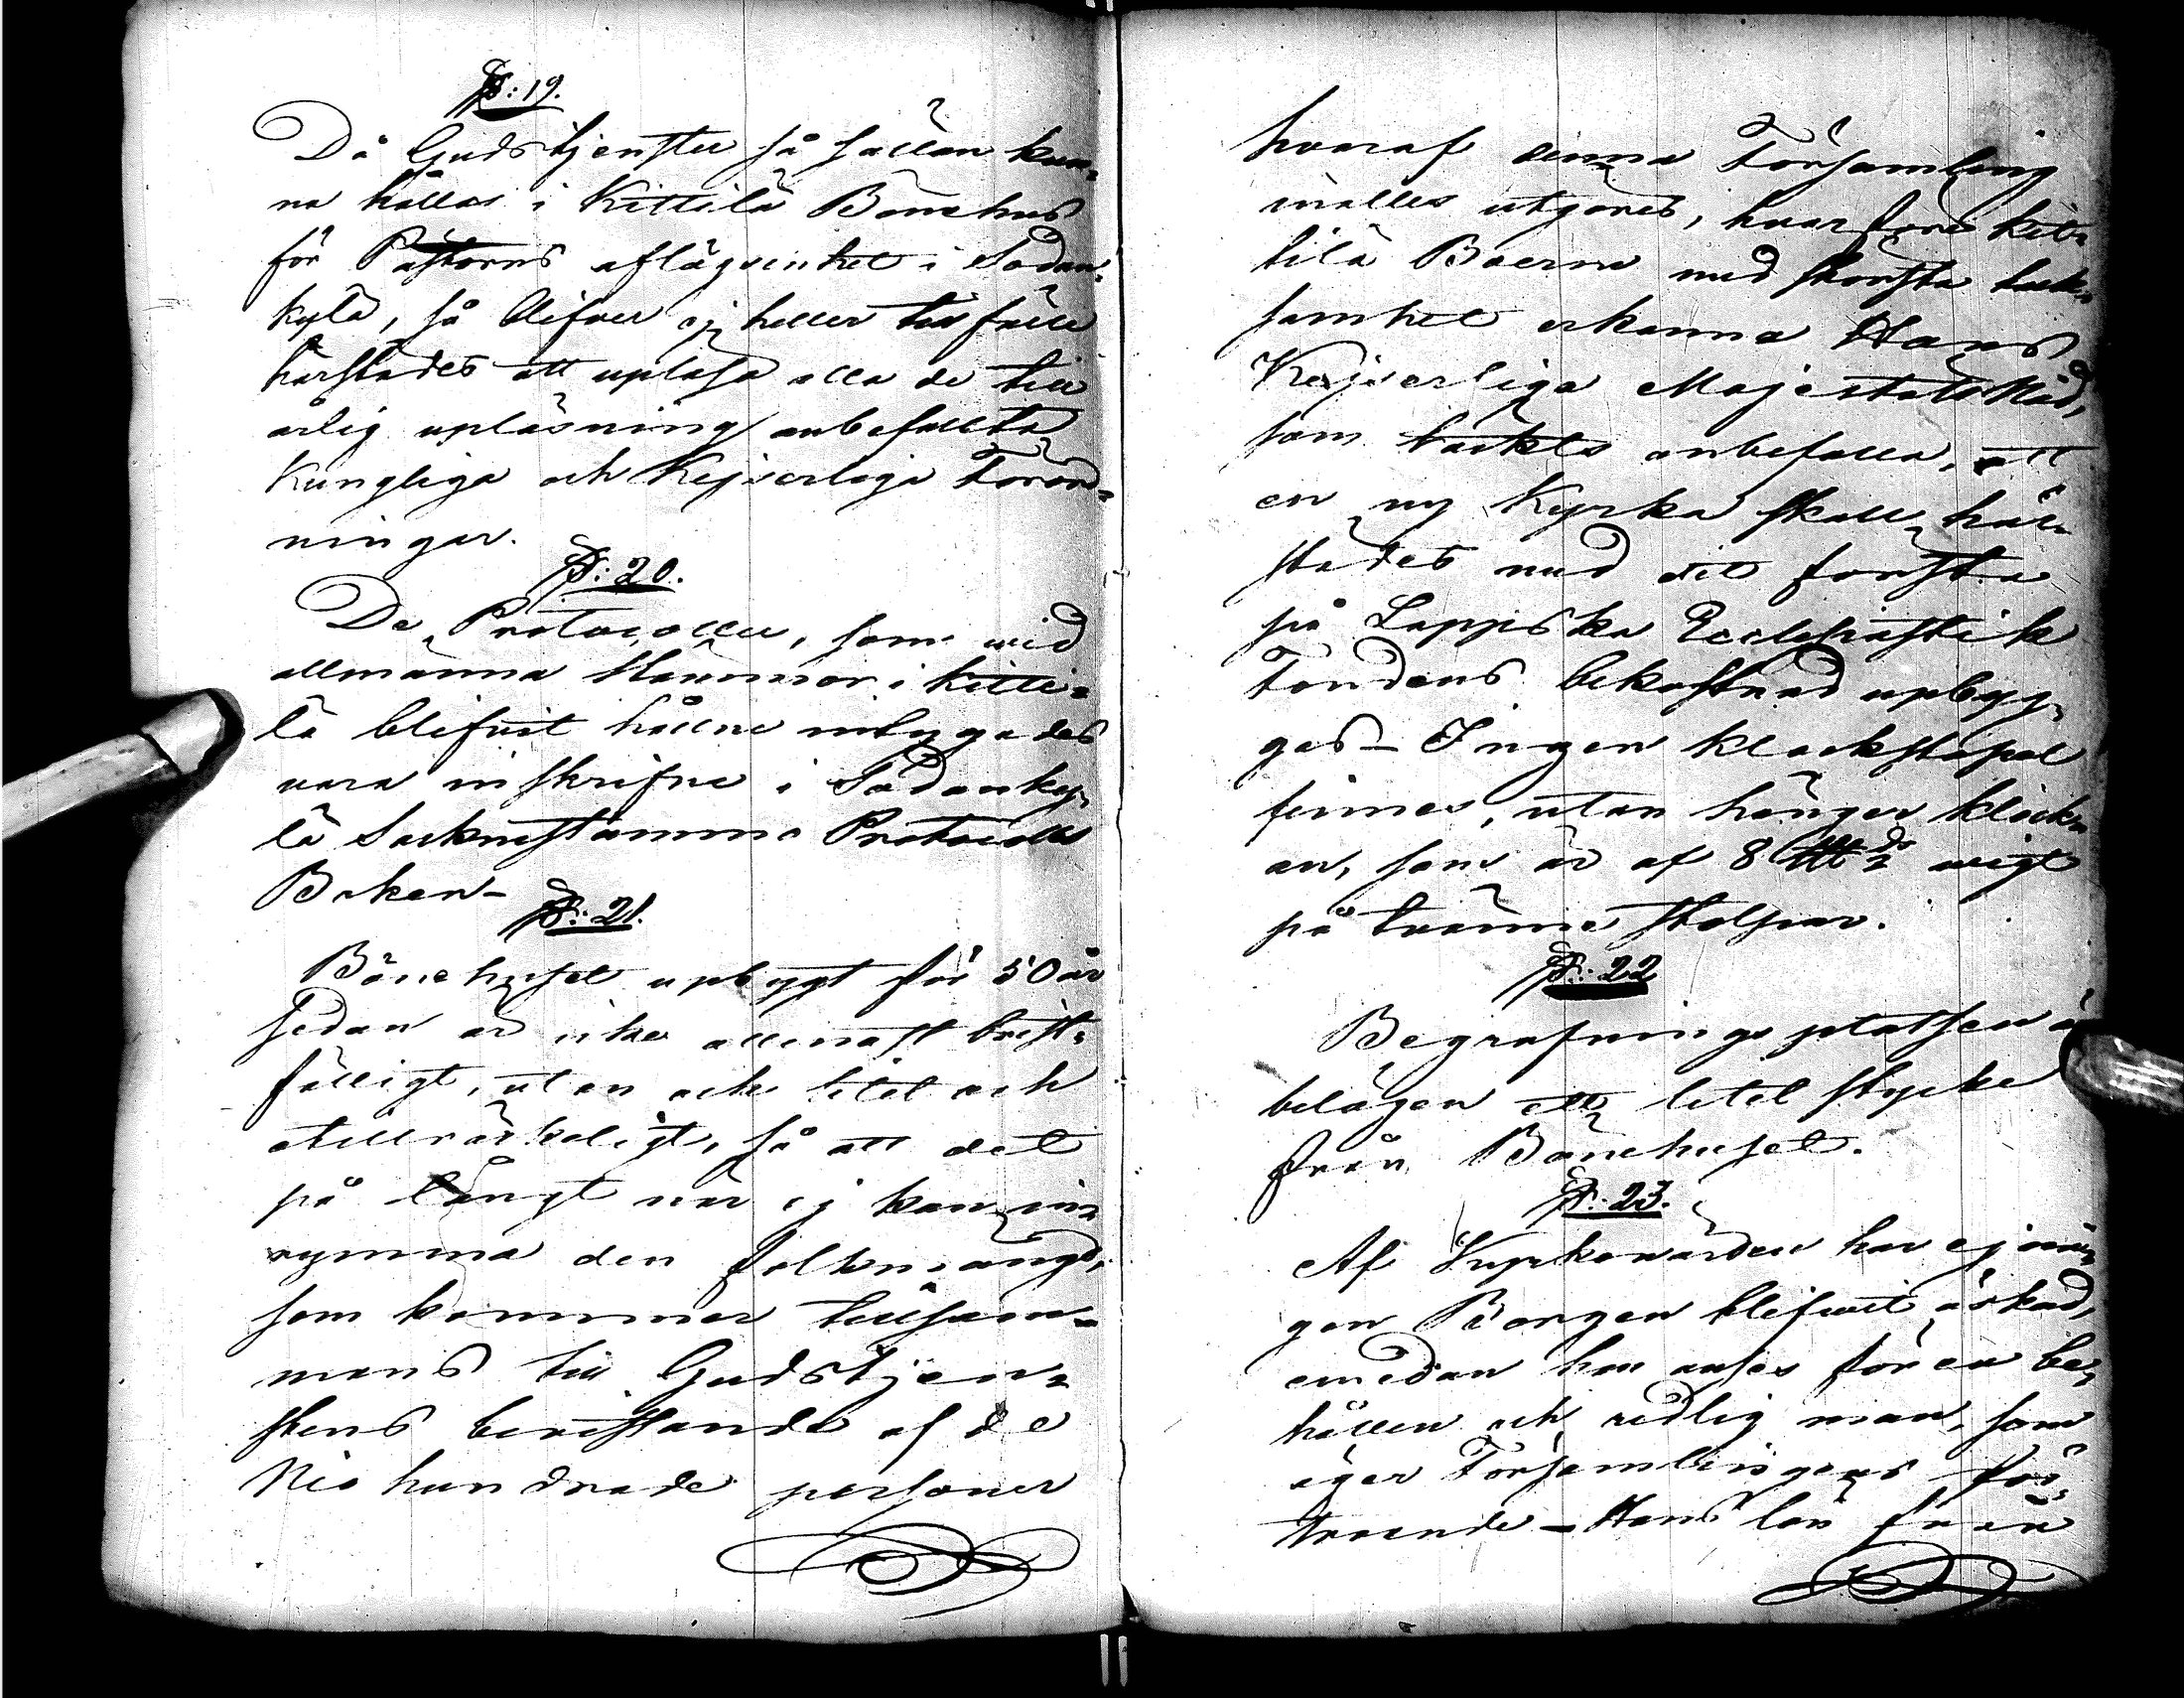 §: 19.
Då Gudstjenster så sällan kun=
na hållas i Kittilä Bönehus
för Pastorns aflägsenhet i Sodan=
kylä, så blifver ej heller tillfälle
härstädes att uplesa alla de till
årlig upläsning anbefallta
Kungliga och Kejserliga Förord=
ningar.
§: 20.
De Protocoller, som wid
allmänna Stämmor i Kitti=
lä blifvit hållne intygades
vara inskrifne i Sodanky=
lä Sockenstämmo Protocolls
Boken –
§: 21.
Bönehuset upbygt för 50 år
sedan är icke allenast brist=
fälligt, utan och litet och
otillräckeligt, så att det
på långt när ej kan in=
rymma den folkmängd,
som kommer tillsam=
mans till Gudstjen=
stens bevistande af de
Nio hundrade personer
hvaraf denna Församling
inalles utgöres, hvarföre Kit=
tilä Boerne med största tack=
samhet erkänna Hans
Kejserliga Majestäts Nåd,
som täckts anbefalla, att
en ny Kyrka skall här=
städes med det första
på Lappska Ecclesiastik
Fondens bekostnad upbyg=
gas – Ingen klockstapel
finnes, utan hänger klock=
an, som är af 8 wigt
på tvänne stolpar.
§: 22
Begrafnings platsen är
belägen ett litet stycke
från Bönehuset.
§: 23.
Af Kyrkowärden har ej nå=
gon Borgen blifwit äskad,
emedan han anses för en be=
hållen och redlig man, som
äger Församlingens för=
troende – Hans lön från